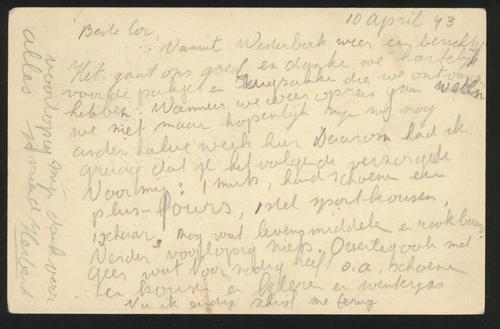 10 April 43
Beste Cor,
Vanuit Westerbork weer een berichtje
Het gaat ons goed en danke we hartelijk
voor de pakjes en die we ontvingen
hebben. Wanneer we weer opreis gaan weten
we niet maar hopenlijk zijn wij nog
anderhalve week hier Daarom had ik
graag dat je het volgende verzorgde
Voor mij: 1 muts, handschoenen een
plus-fours, 1 stel sportkousen,
1 schaar, nog wat levensmiddelen en
Verder voorlopig niets. Overtig ook met
Geer wat voor nodig heeft o.a. schoenen
en kousen en kleren en winterjas
Nu ik eindig schrijf me terug
voorlopig mijn dank voor
alles je vriend Herbert